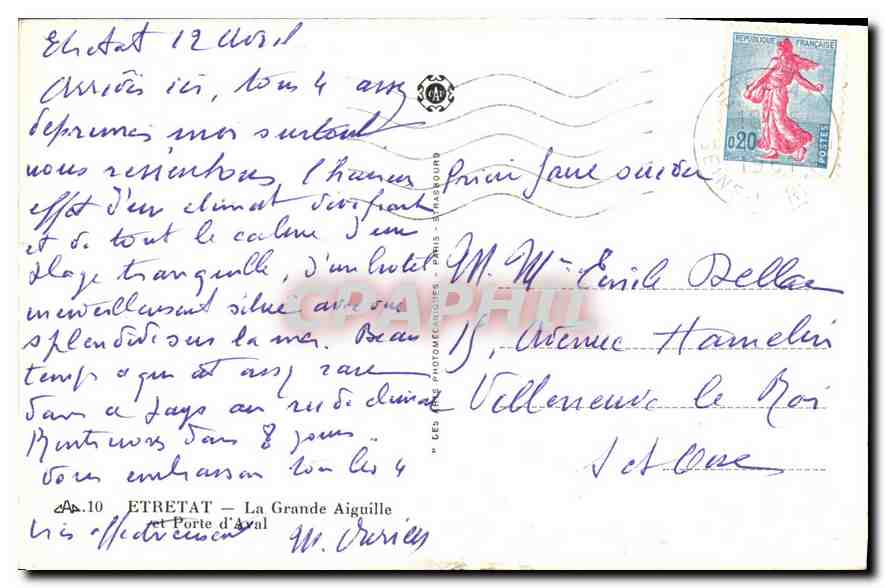 Etretat 12 Avril
Arrivés ici, tous 4 assez
deprimés moi surtout
nous ressentons l'heureux
effet d'un climat vivifiant
et de tout le calme d'une
plage tranquille, d'un hotel
merveilleusement situé avec vue
splendide sur la mer. Beau
temps ce qui est assez rare
dans ce pays au rude climat
dans 8 jours.
Vous embrassons tous les 4
très affectueusement M.
CAP
" DES ARTS PHOTOMÉCANIQUES - PARIS - STRASBOURG
CAP.10 ETRETAT — La Grande Aiguille
et Porte d'Aval
REPUBLIQUE FRANÇAISE
0,20
POSTES
SEINE
Prière faire suivre
M. Mme Emile Dellac
15, Avenue Hamelin
Villeneuve le Roi
S et Oise
CPAPHIL